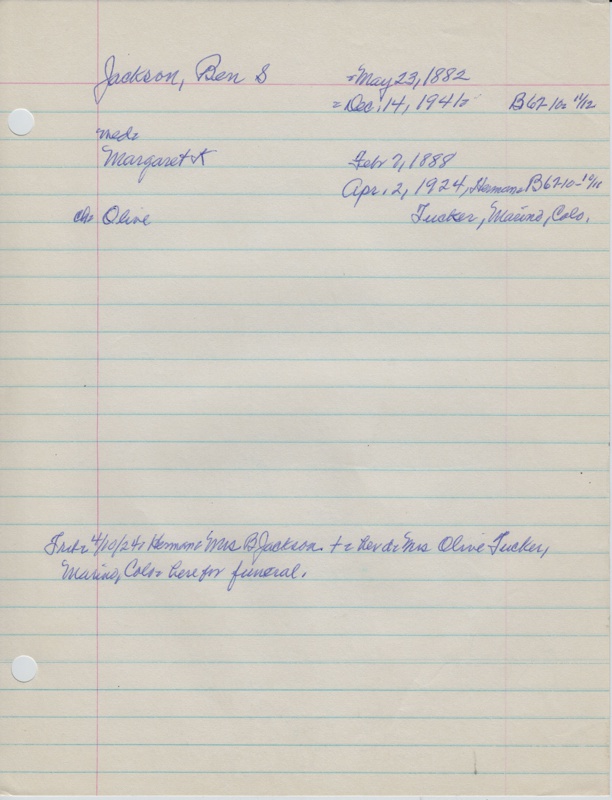 Jackson, Ben S =May 23, 1882
= Dec. 14, 1941= B62-10= 11/12
med=
Margaret K Febr 7, 1888
Apr. 2, 1924, Hermans B62-10-
ch= Olive Tucker, Marino, Colo.
4/10/24= Hermans Mrs B Jackson += her d= Mrs Olive Tucker,
Marino, Colo= here for funeral.